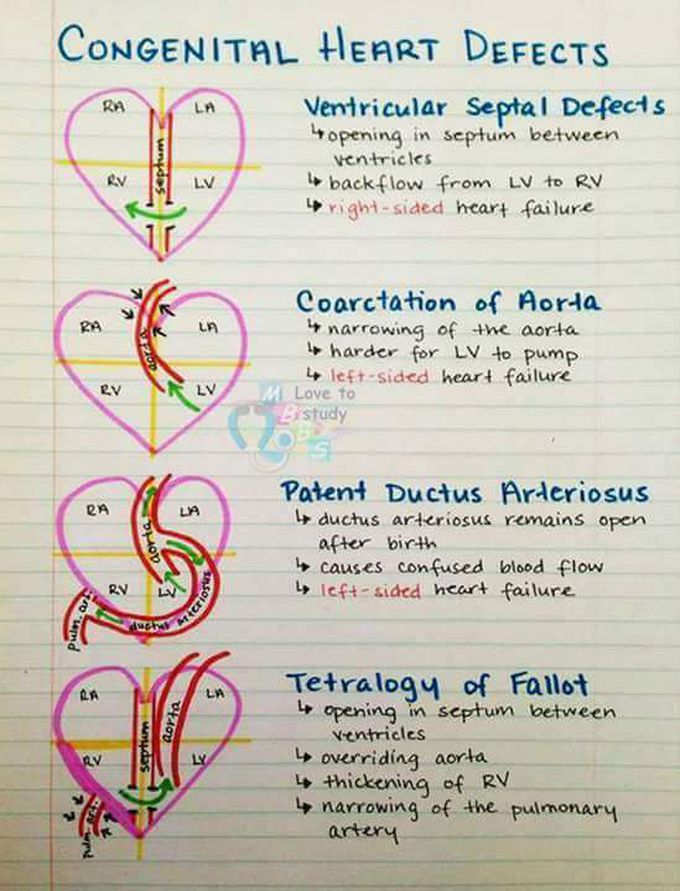 CONGENITAL HEART DEFECTS
RA LA
septum
RV LV
Ventricular Septal Defects
↳ opening in septum between
ventricles
↳ backflow from LV to RV
↳ right-sided heart failure
RA LA
aorta
RV LV
Coarctation of Aorta
↳ narrowing of the aorta
↳ harder for LV to pump
↳ left-sided heart failure
Love to
study
MBBS
RA LA
aorta
RV LV
pulm. art.
ductus arteriosus
Patent Ductus Arteriosus
↳ ductus arteriosus remains open
after birth
↳ causes confused blood flow
↳ left-sided heart failure
RA LA
aorta
septum
RV LV
pulm. art.
Tetralogy of Fallot
↳ opening in septum between
ventricles
↳ overriding aorta
↳ thickening of RV
↳ narrowing of the pulmonary
artery